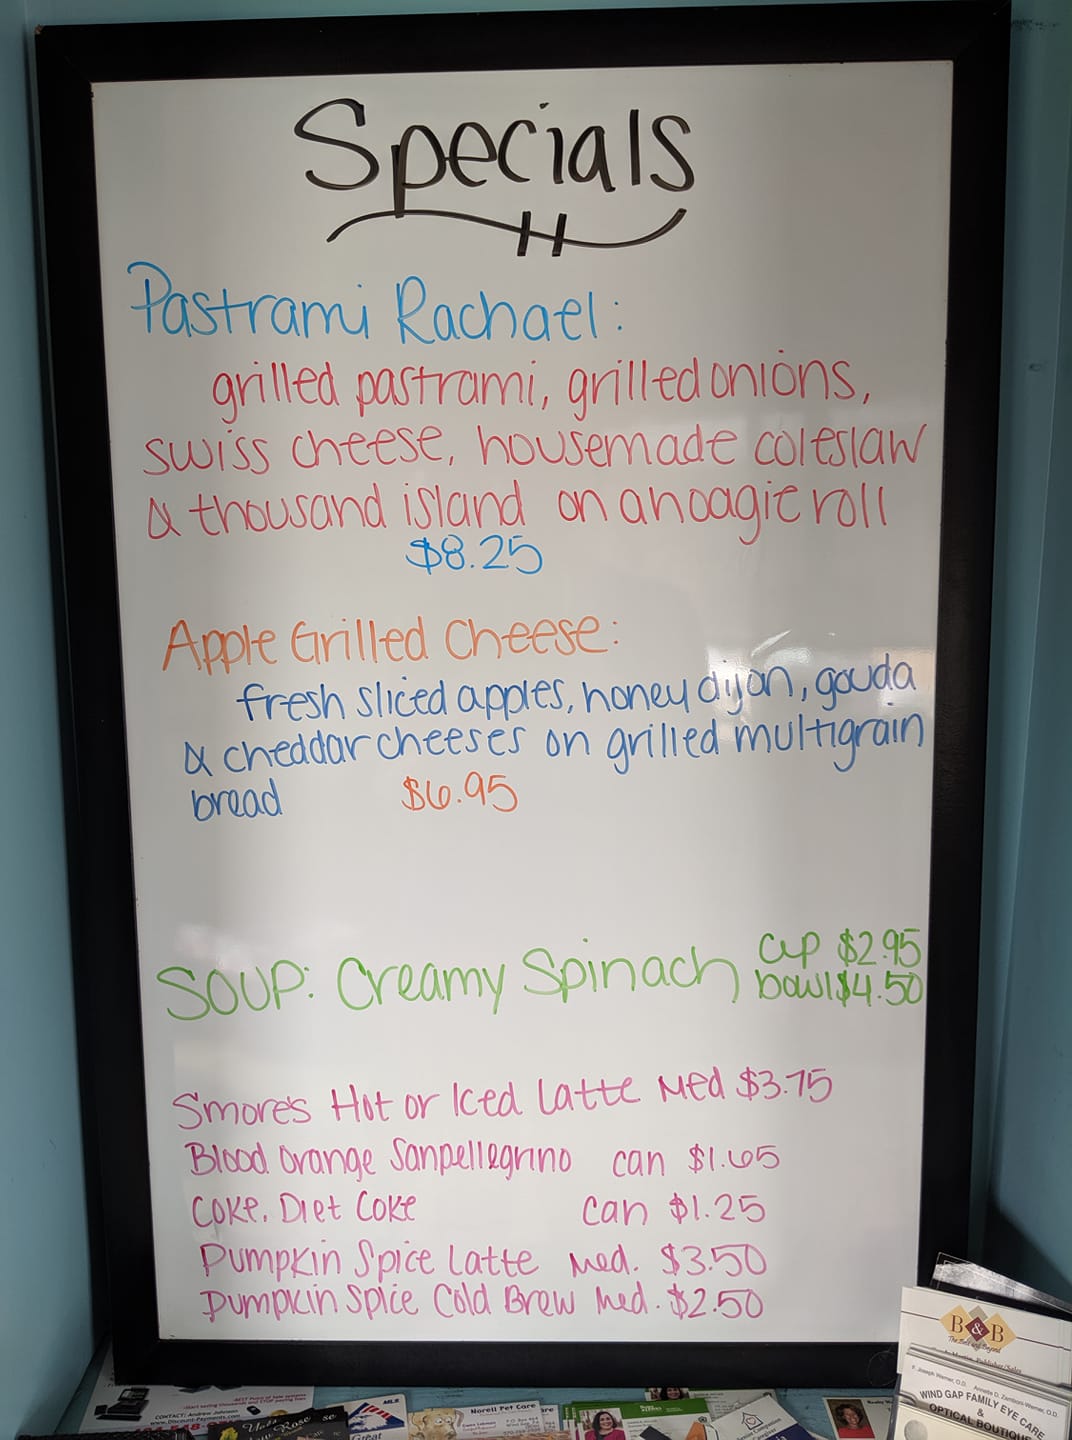 Specials
Pastrami Rachael:
grilled pastrami, grilled onions,
swiss cheese, housemade coleslaw
& thousand island on a hoagie roll
$8.25
Apple Grilled Cheese:
fresh sliced apples, honey dijon, gouda
& cheddar cheeses on grilled multigrain
bread $6.95
Soup: Creamy Spinach cup $2.95
bowl $4.50
S'mores Hot or Iced Latte Med $3.75
Blood Orange Sanpellegrino can $1.65
Coke, Diet Coke can $1.25
Pumpkin Spice Latte Med. $3.50
Pumpkin Spice Cold Brew Med. $2.50
B&B
F. Joseph Werner, O.D.
WIND GAP FAMILY EYE CARE
&
OPTICAL BOUTIQUE
CONTACT: Andrew Johnson
www.Discount-Payments.com
Great
Norell Pet Care